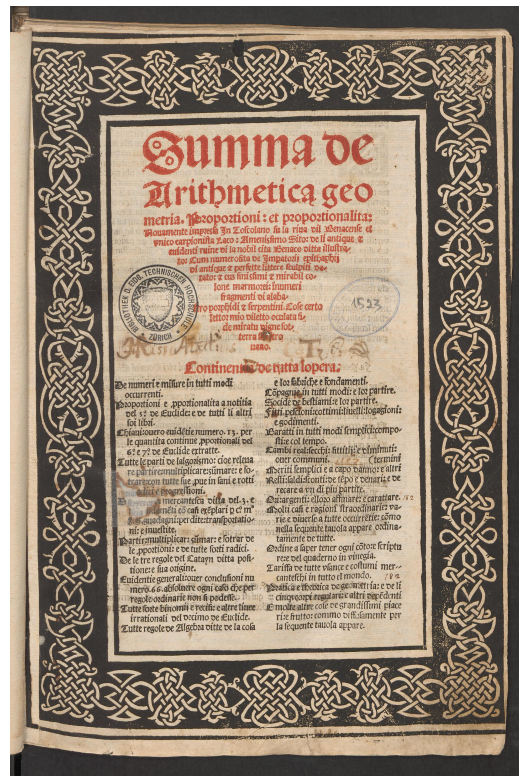 Summa de
Arithmetica geo
metria. Proportioni: et proportionalita:
Nouamente impressa In Toscolano su la riua dil Benacense et
vnico carpionista Laco: Amenissimo Sito: de li antique &
euidenti ruine di la nobil cita Benaco ditta illustra
to: Cum numerosita de Impatorij epithaphij
di antique & perfette littere sculpiti do-
tato: & cun finissimi & mirabil co-
lone marmorei: inumeri
fragmenti di alaba-
stro porphidi & serpentini. Cose certo
lettor mio diletto oculata fi-
de miratu digne sot-
terra
uano.
BIBLIOTHEK D. EIDG. TECHNISCHEN HOCHSCHULE
ZÜRICH
1523
Continentia de tutta lopera.
De numeri e misure in tutti modi
occurrenti.
Proportioni e pportionalita a notitia
del 5º de Euclide: e de tutti li altri
soi libri.
Chiaui: ouero euidētie numero. 13. per
le quantita continue pportionali del
6º e 7º de Euclide extratte.
Tutte le parti de lalgorismo: cioe releua
re partire multiplicare: sūmare: e so-
trare: con tutte sue pue in sani e rotti
e progressioni.
De mercantesca ditta del. 3. e
perdite: transportatio
ni: e inuestite.
Partir: multiplicar: sūmar: e sotrar de
le pportioni: e de tutte sorti radici.
De le tre regole del Catayn ditta posi-
tione: e sua origine.
Euidentie generali: ouer conclusioni nu
mero. 66. absoluere ogni caso che per
regole ordinarie non si podesse.
Tutte sorte binomii e recisi: e altre linee
irrationali del decimo de Euclide.
Tutte regole de Algebra ditte de la cosa
e lor fabriche e fondamenti.
Cōpagnie in tutti modi: e lor partire.
Socide de bestiami: e lor partire.
Fitti: pesciōni: cottimi: liuelli: logagioni:
e godimenti.
Baratti in tutti modi semplici: compo-
sti: e col tempo.
Cambi reali: secchi: fittitii: e diminuti:
ouer communi.
(termini
Meriti semplici e a capo danno: e altri
Resti: saldi: sconti: de tēpo e denari: e de
recare a vn di piu partite.
Ori: argenti: e lloro affinare: e carattare.
Molti casi e ragioni straordinarie: va-
rie e diuerse a tutte occurrētie: cōmo
nella sequente tauola appare ordina-
mente de tutte.
Ordine a saper tener ogni cōto: e scriptu
re: e del quaderno in vinegia.
Tariffa de tutte vsance e costumi mer-
canteschi in tutto el mondo.
Pratica e theorica de geometria: e de li
cinque corpi regulari: e altri depēdenti
E molte altre cose de grandissimi piace
ri: e frutto: commo diffusamente per
la sequente tauola appare.